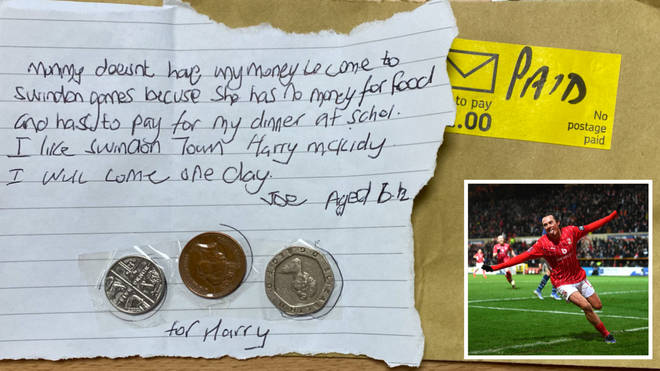 Mummy doesnt have my money to come to
Swindon games becuse she has no money for food
and hass to pay for my dinner at schol.
I like Swindon Town Harry mckidy.
I will come one day.
Joe Aged 6 1/2
for Harry
PAID
to pay
.00
No
postage
paid